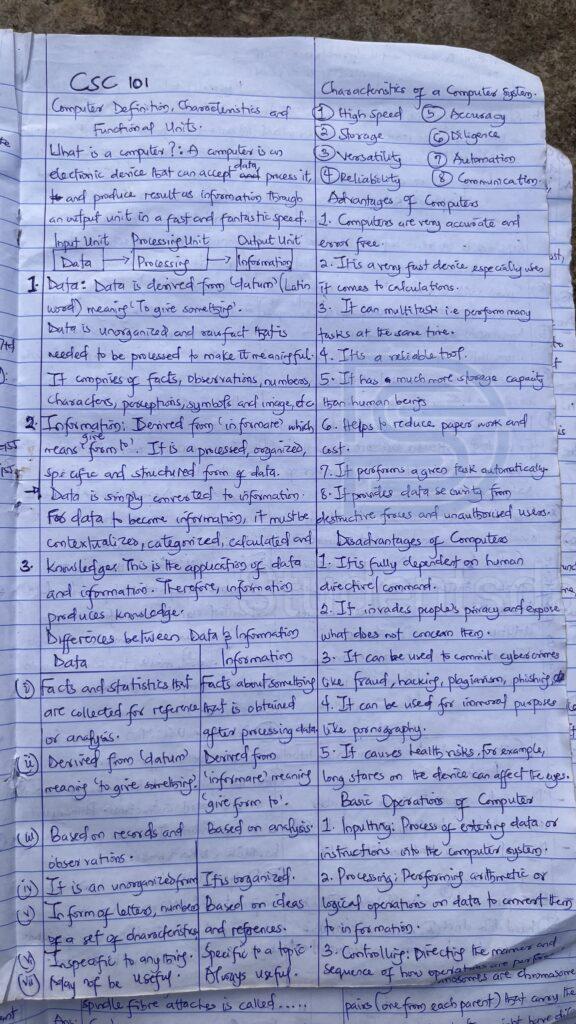 CSC 101
Computer Definition, Characteristics and
Functional Units.
What is a computer?: A computer is an
electronic device that can accept data, process it,
and produce result as information through
an output unit in a fast and fantastic speed.
Input Unit Processing Unit Output Unit
Data Processing Information
1. Data: Data is derived from 'datum' (Latin
word) meaning 'To give something'.
Data is unorganized and raw fact that is
needed to be processed to make it meaningful.
It comprises of facts, observations, numbers,
characters, perceptions, symbols and image, etc
2. Information: Derived from 'informare' which
means 'give form to'. It is a processed, organized,
specific and structured form of data.
→ Data is simply converted to information.
For data to become information, it must be
contextualized, categorized, calculated and
3. Knowledge: This is the application of data
and information. Therefore, information
produces knowledge.
Differences between Data & Information
Data Information
(i) Facts and statistics that Facts about something
are collected for reference that is obtained
or analysis. after processing data.
(ii) Derived from 'datum' Derived from
meaning 'to give something'. 'informare' meaning
'give form to'.
(iii) Based on records and Based on analysis.
observations.
(iv) It is an unorganized from It is organized.
(v) In form of letters, numbers Based on ideas
of a set of characteristics and references.
(vi) Inspecific to anything. Specific to a topic.
(vii) May not be useful. Always useful.
spindle fibre attaches is called......
Characteristics of a Computer System.
1 High Speed 5 Accuracy
2 Storage 6 Diligence
3 Versatility 7 Automation
4 Reliability 8 Communication.
Advantages of Computers
1. Computers are very accurate and
error free.
2. It is a very fast device especially when
it comes to calculations.
3. It can multitask i.e perform many
tasks at the same time.
4. It is a reliable tool.
5. It has much more storage capacity
than human beings
6. Helps to reduce paper work and
cost.
7. It performs a given task automatically.
8. It provides data security from
destructive forces and unauthorised users.
Disadvantages of Computers
1. It is fully dependent on human
directive/command.
2. It invades people's privacy and expose
what does not concern them.
3. It can be used to commit cybercrimes
like fraud, hacking, plagiarism, phishing,
4. It can be used for immoral purposes
like pornography.
5. It causes health risks, for example,
long stares on the device can affect the eyes.
Basic Operations of Computer
1. Inputting: Process of entering data or
instructions into the computer system.
2. Processing: Performing arithmetic or
logical operations on data to convert them
to information.
3. Controlling: Directing the manner and
sequence of how operations are
are chromosome
pairs (one from each parent) that carry the